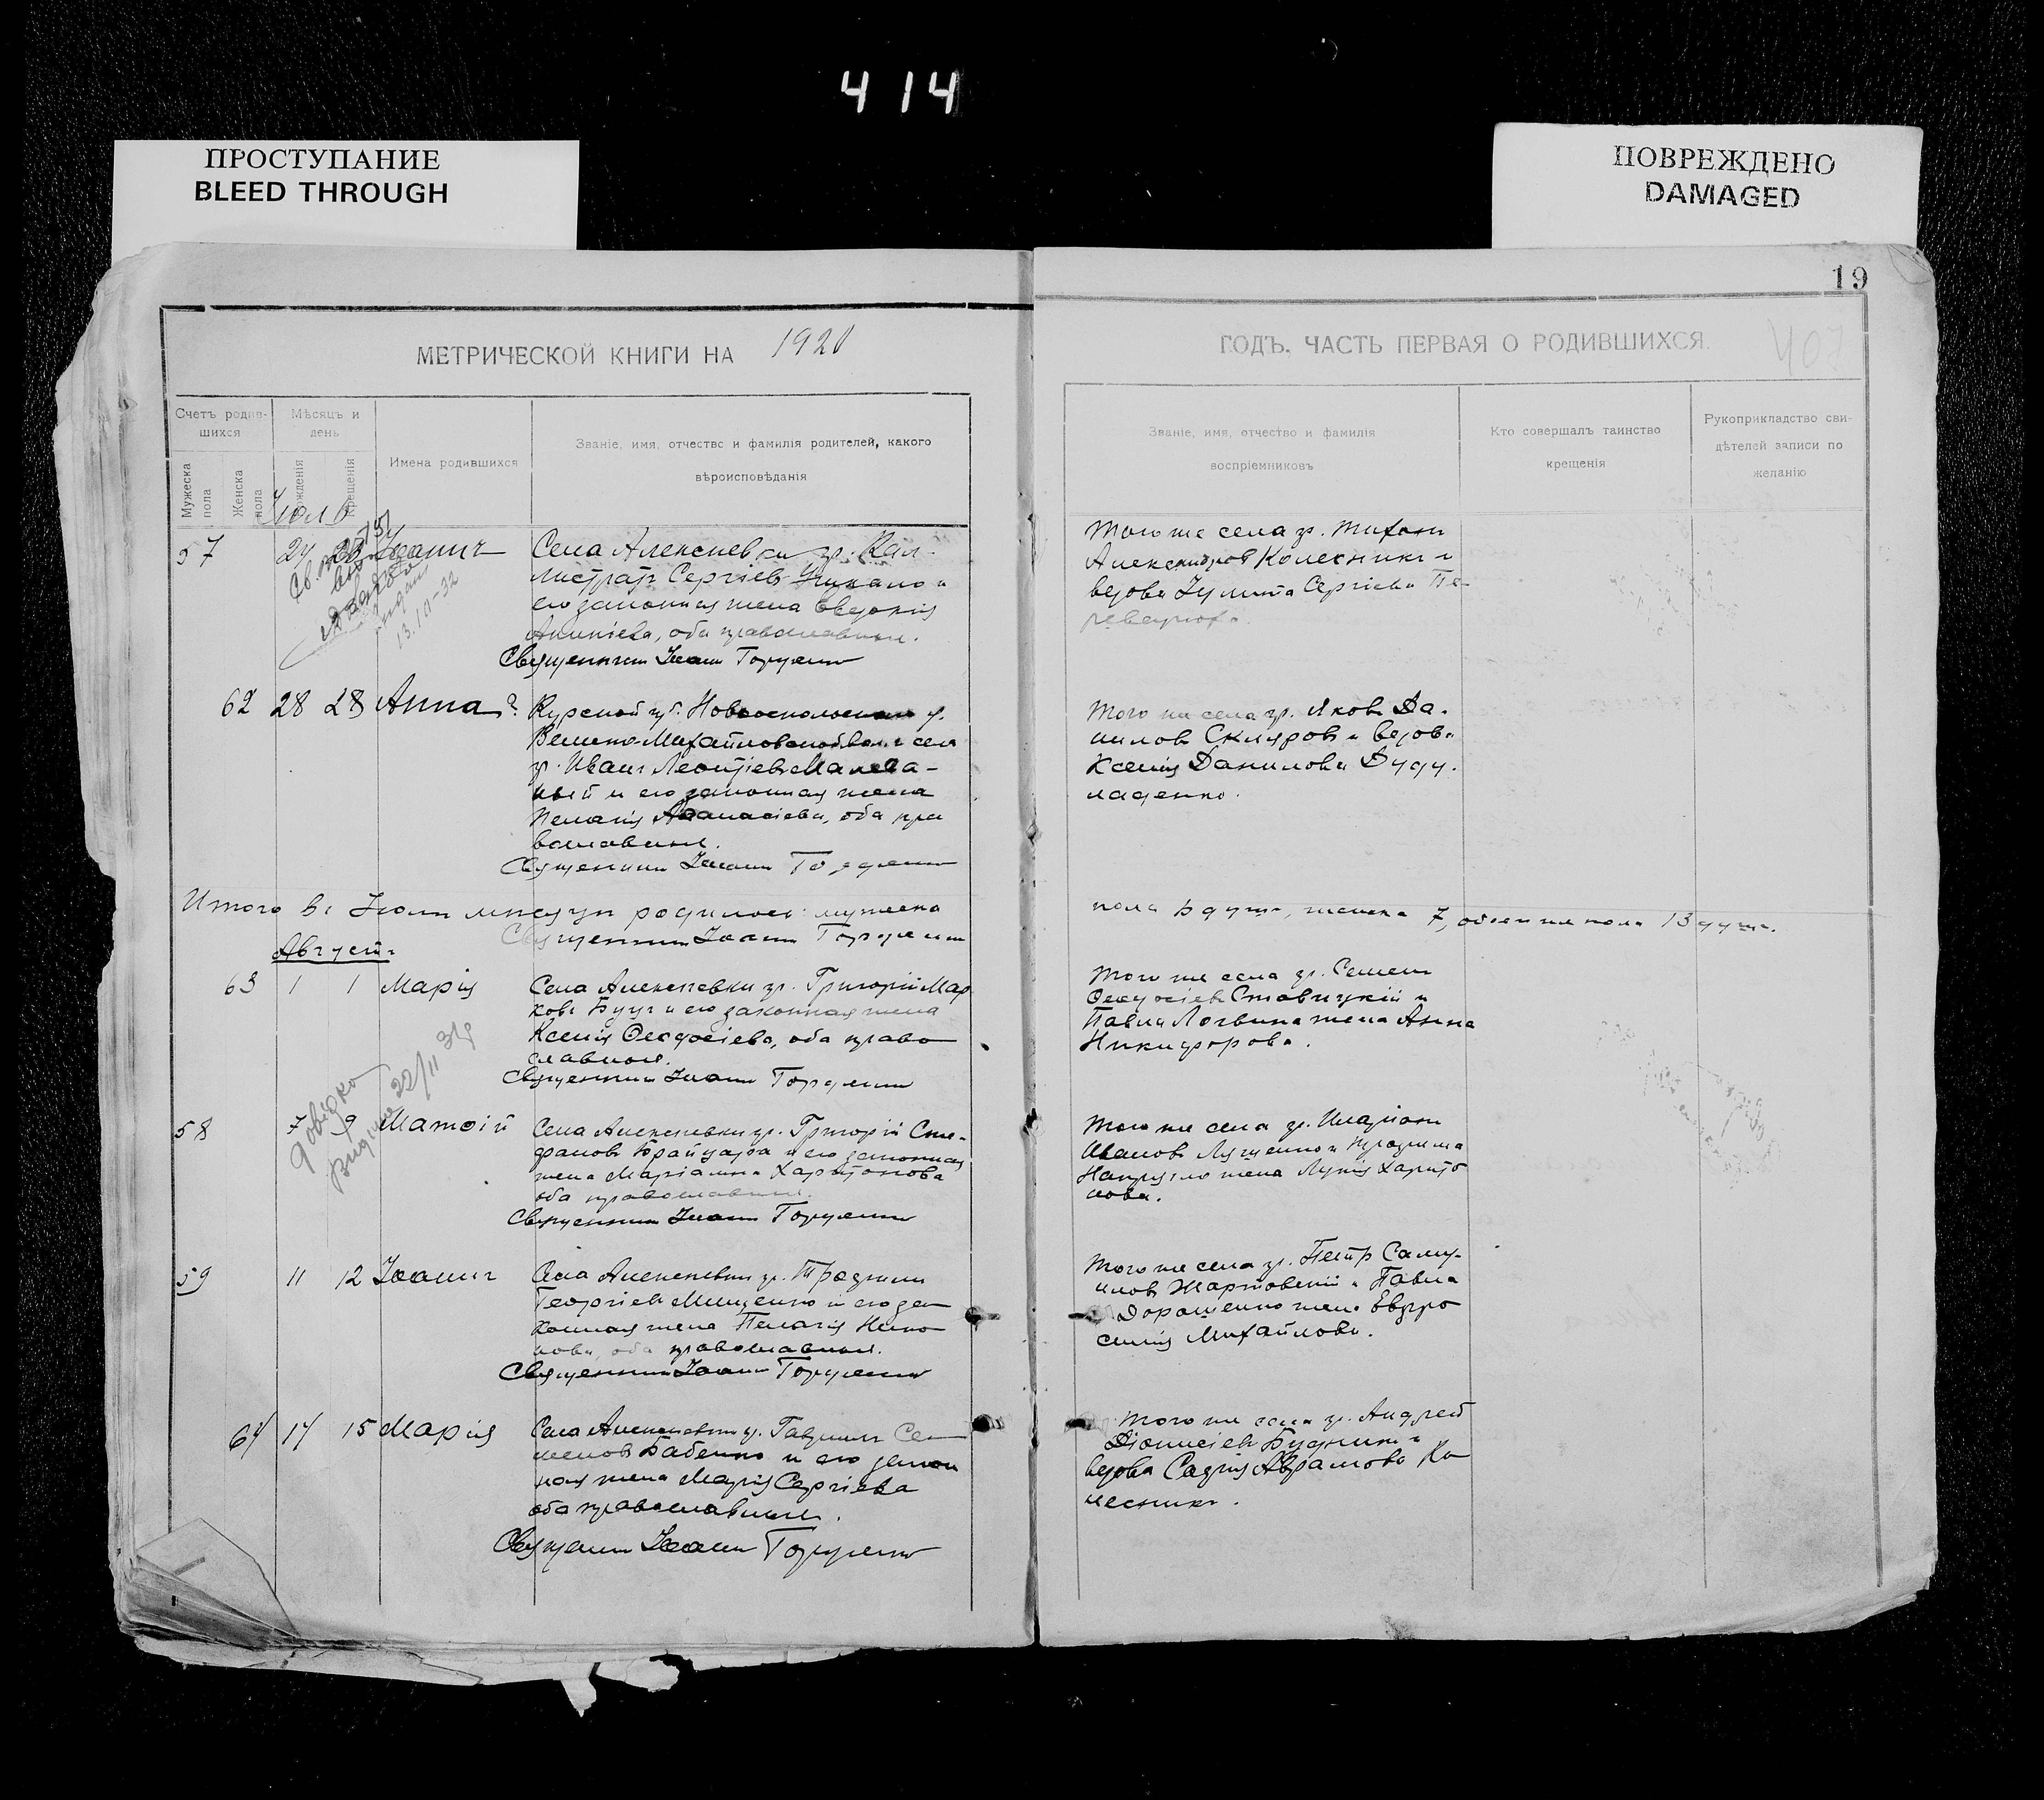 4 14
ПРОСТУПАНИЕ
BLEED THROUGH
ПОВРЕЖДЕНО
DAMAGED
19
МЕТРИЧЕСКОЙ КНИГИ НА 1920
ГОДЪ. ЧАСТЬ ПЕРВАЯ О РОДИВШИХСЯ.
407
Счетъ родив-
шихся
Мужеска
пола
Женска
пола
Мѣсяцъ и
день
рожденія
крещенія
Имена родившихся
Званіе, имя, отчество и фамилія родителей, какого
вѣроисповѣданія
Званіе, имя, отчество и фамилія
воспріемниковъ
Кто совершалъ таинство
крещенія
Рукоприкладство сви-
дѣтелей записи по
желанію
Іюль
57 27 Іоаннъ
Села Алексѣевки гр. Кал-
листратъ Сергіевъ и
его законная жена Евдокія
оба православные.
Священникъ Іоаннъ
13/III-32
Того же села гр. Тихонъ
Александровъ Колесникъ и
вдова Іулита Сергіева Пе-
62 28 28 Анна
Курской губ. Новооскольскаго у.
Велико-Михайловской вол. и села
гр. Иванъ Леонтіевъ
и его законная жена
Пелагія Аѳанасіева, оба пра
вославные.
Священникъ Іоаннъ
Того же села гр. Яковъ Да-
ниловъ Скляровъ и вдова
Ксенія Данилова Дуду-
ладенко.
Итого въ Іюлѣ мѣсяцѣ родилось: мужеска
пола 6 душъ, женска 7, обоего пола 13 душъ.
Священникъ Іоаннъ
Августъ
63 1 1 Марія
Села Алексѣевки гр. Григорій Мар
ковъ Буцъ и его законная жена
Ксенія Ѳеодосіева, оба право
славные.
Священникъ Іоаннъ
Того же села гр. Семенъ
Ѳеодосіевъ Ставицкій и
Павла Логвина жена Анна
Никифорова.
22/II 31
58 7 9 Матѳій
Села Алексѣевки гр. Григорій Сте-
фановъ и его законная
жена Маріамна Харитонова
оба православные.
Священникъ Іоаннъ
Того же села гр. Иларіонъ
Ивановъ Луценко и Трофима
жена Лукія Харито
нова.
59 11 12 Іоаннъ
Села Алексѣевки гр. Трофимъ
Георгіевъ Мищенко и его за
конная жена Пелагія Нико
нова, оба православные.
Священникъ Іоаннъ
Того же села гр. Петръ Саму-
иловъ Жартовскій и Павла
Дорошенко жена Евфро
синія Михайлова.
64 14 15 Марія
Села Алексѣевки гр. Гавріилъ Се
меновъ Бабенко и его закон
ная жена Марія Сергіева
оба православные.
Священникъ Іоаннъ
Того же села гр. Андрей
Діонисіевъ Будникъ и
вдова Авраамова Ко
лесникъ.